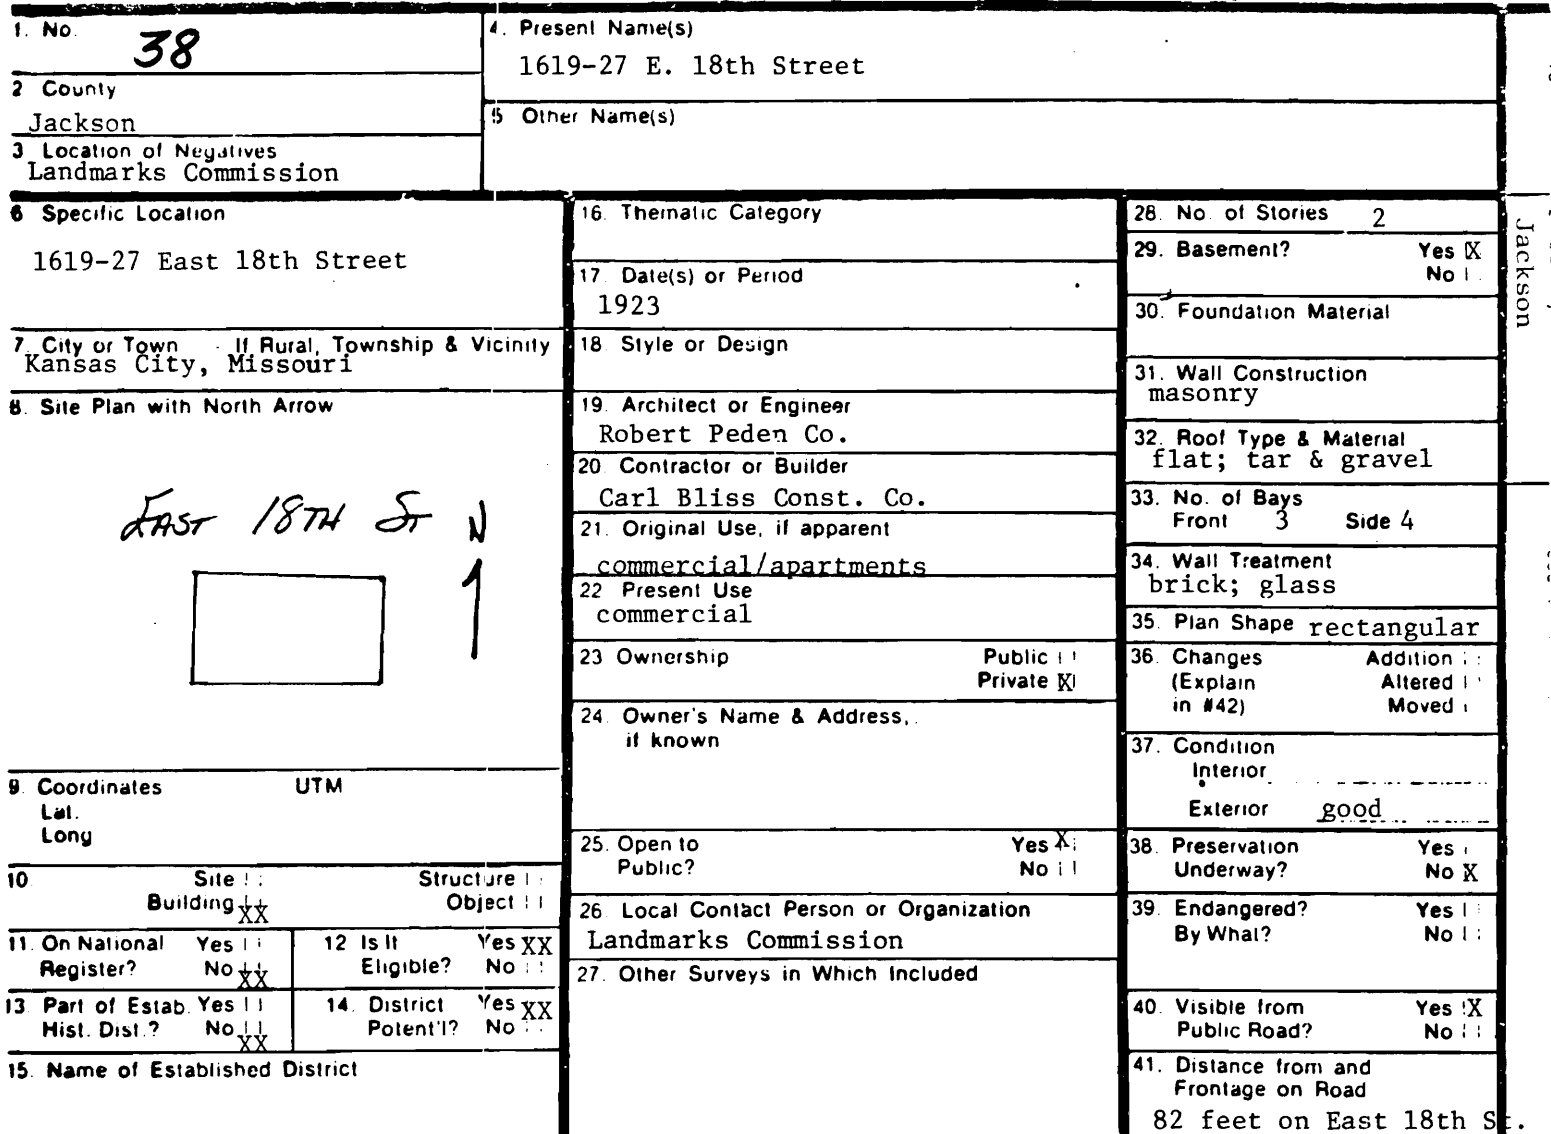 1. No. 38
2 County
Jackson
3 Location of Negatives
Landmarks Commission
4. Present Name(s)
1619-27 E. 18th Street
5 Other Name(s)
6 Specific Location
1619-27 East 18th Street
7. City or Town If Rural, Township & Vicinity
Kansas City, Missouri
8. Site Plan with North Arrow
EAST 18TH ST N
9. Coordinates UTM
Lat.
Long
10. Site Structure
Building XX Object
11. On National Yes
Register? No XX
12 Is It Yes XX
Eligible? No
13 Part of Estab. Yes
Hist. Dist.? No XX
14. District Yes XX
Potent'l? No
15. Name of Established District
16. Thematic Category
17. Date(s) or Period
1923
18. Style or Design
19. Architect or Engineer
Robert Peden Co.
20. Contractor or Builder
Carl Bliss Const. Co.
21. Original Use, if apparent
commercial/apartments
22 Present Use
commercial
23 Ownership Public
Private X
24. Owner's Name & Address,
if known
25. Open to Yes X
Public? No
26. Local Contact Person or Organization
Landmarks Commission
27. Other Surveys in Which Included
28. No. of Stories 2
29. Basement? Yes X
No
30. Foundation Material
31. Wall Construction
masonry
32. Roof Type & Material
flat; tar & gravel
33. No. of Bays
Front 3 Side 4
34. Wall Treatment
brick; glass
35. Plan Shape rectangular
36. Changes Addition
(Explain Altered
in #42) Moved
37. Condition
Interior
Exterior good
38. Preservation Yes
Underway? No X
39. Endangered? Yes
By What? No
40. Visible from Yes X
Public Road? No
41. Distance from and
Frontage on Road
82 feet on East 18th St.
Jackson